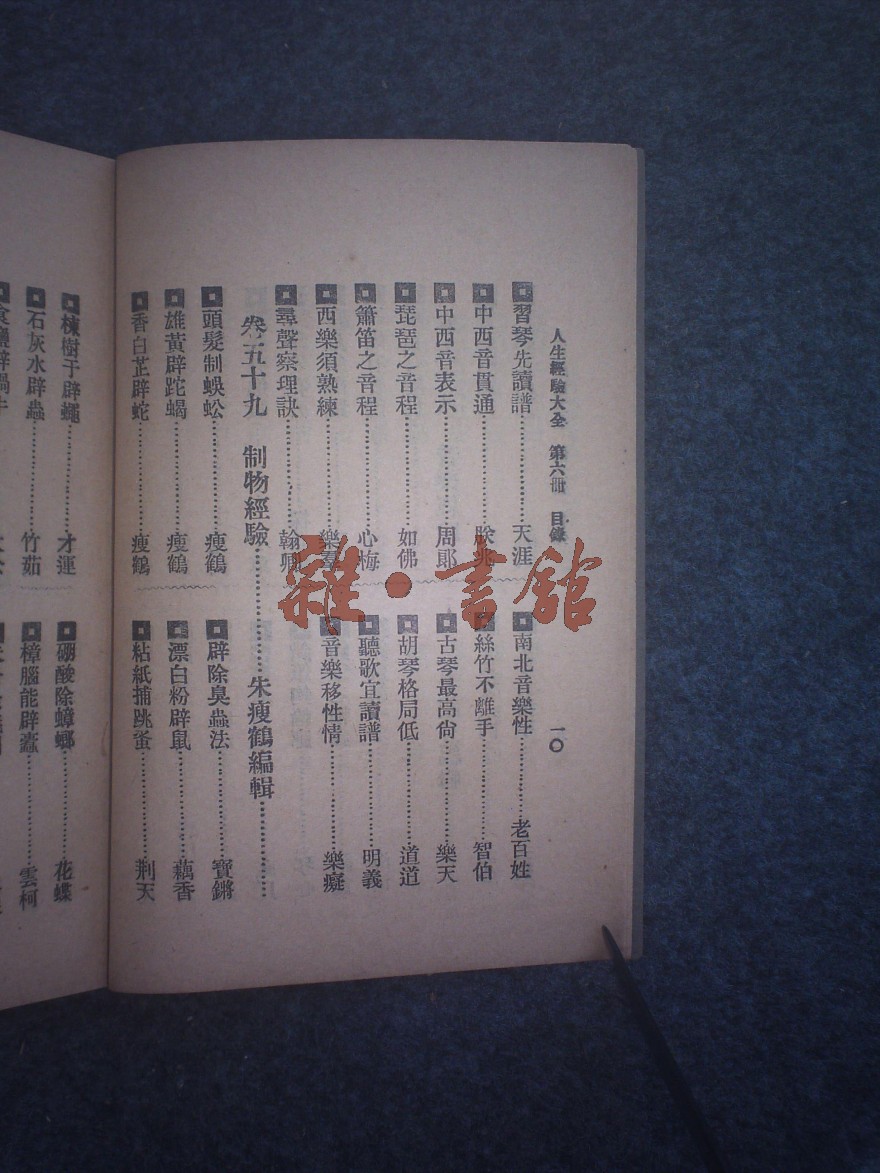 人生經驗大全　第六冊　目錄　一〇
習琴先讀譜……天涯
中西音貫通
中西音表示……周郞
琵琶之音程……如佛
簫笛之音程……心梅
西樂須熟練……樂羣
尋聲察理訣……翰
南北音樂性……老百姓
絲竹不離手……智伯
古琴最高尙……樂天
胡琴格局低……道道
聽歌宜讀譜……明義
音樂移性情……樂癡
卷五十九　制物經驗……朱瘦鶴編輯……
頭髮制蜈蚣……瘦鶴
雄黃辟蛇蝎……瘦鶴
香白芷辟蛇……瘦鶴
辟除臭蟲法……寶鏘
漂白粉辟鼠……藕香
粘紙捕跳蚤……荆天
楝樹子辟蠅……才運
石灰水辟蟲……竹茹
硼酸除蟑螂……花蝶
樟腦能辟蠹……雲柯
雜·書舘